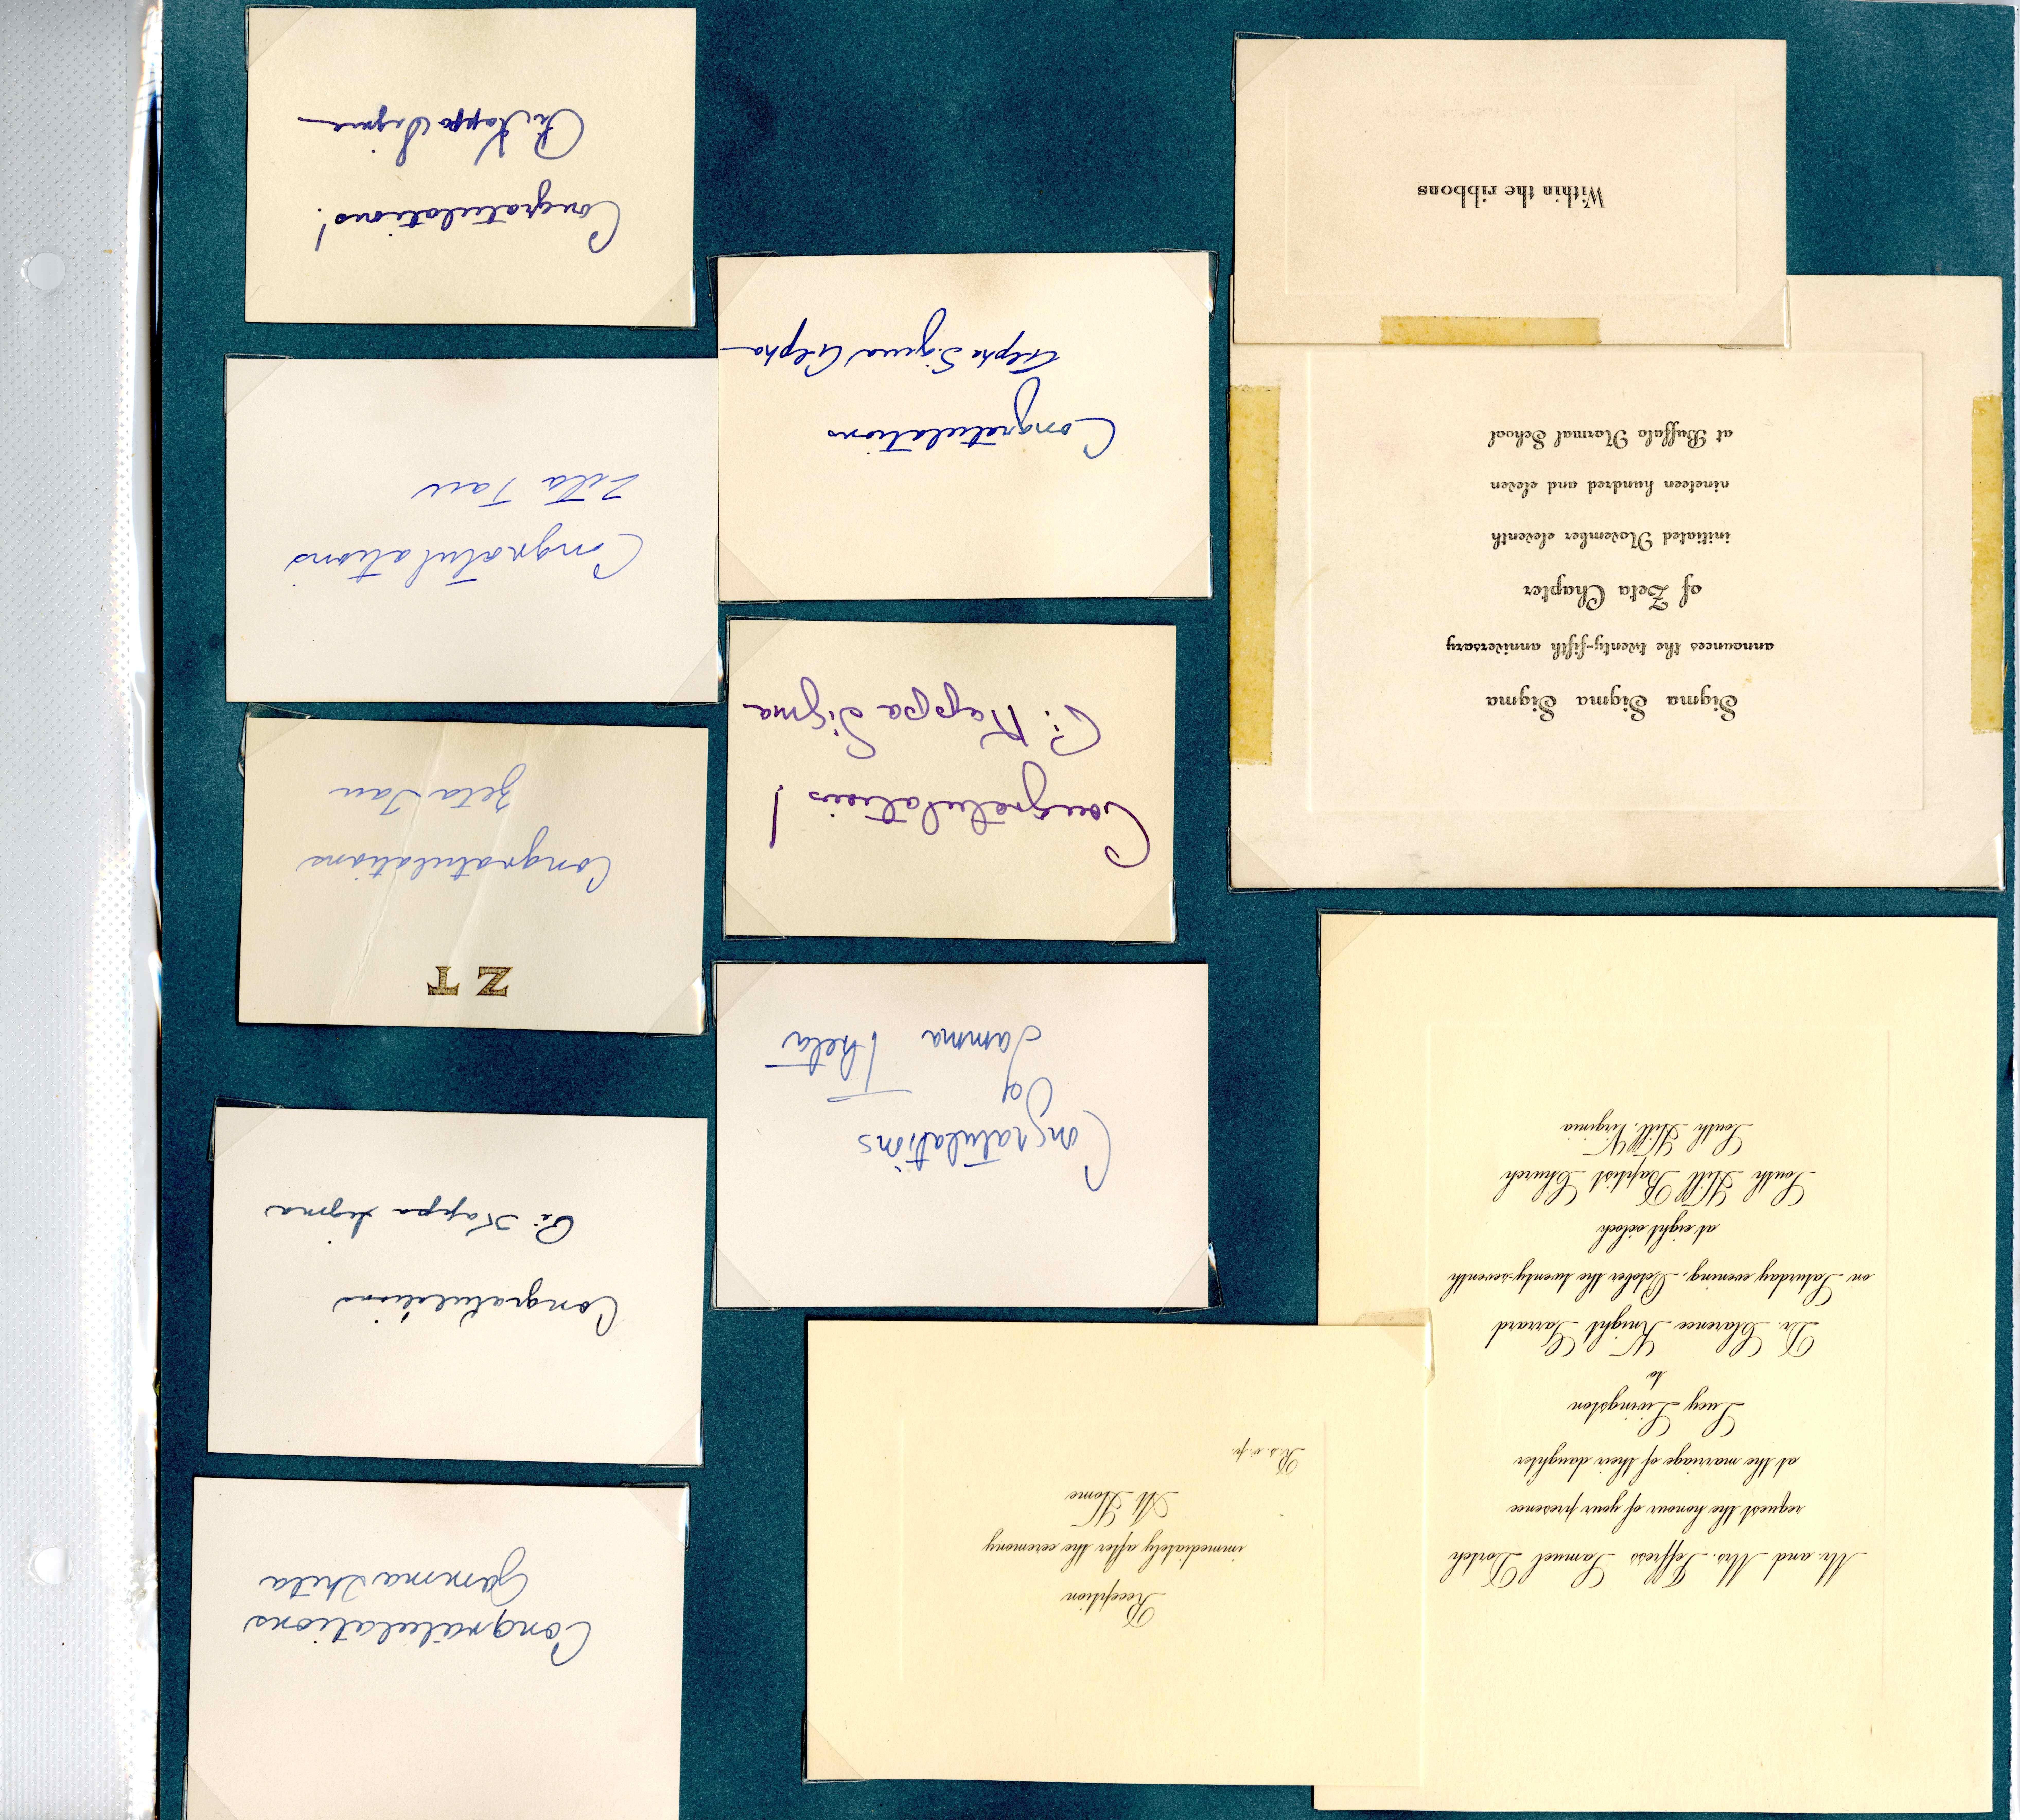 Mr. and Mrs. Jeffress Samuel Dortch
request the honour of your presence
at the marriage of their daughter
Lucy Livingston
to
Dr. Clarence Knight Garrard
on Saturday evening, October the twenty-seventh
at eight o'clock
South Hill Baptist Church
South Hill, Virginia
Reception
immediately after the ceremony
At Home
R.s.v.p.
Sigma Sigma Sigma
announces the twenty-fifth anniversary
of Zeta Chapter
initiated November eleventh
nineteen hundred and eleven
at Buffalo Normal School
Within the ribbons
Congratulations
Of
Gamma Theta
Congratulations!
Pi Kappa Sigma
Congratulations
Alpha Sigma Alpha
Congratulations
Gamma Theta
Congratulations
Pi Kappa Sigma
Z T
Congratulations
Zeta Tau
Congratulations
Zeta Tau
Congratulations!
Pi Kappa Sigma